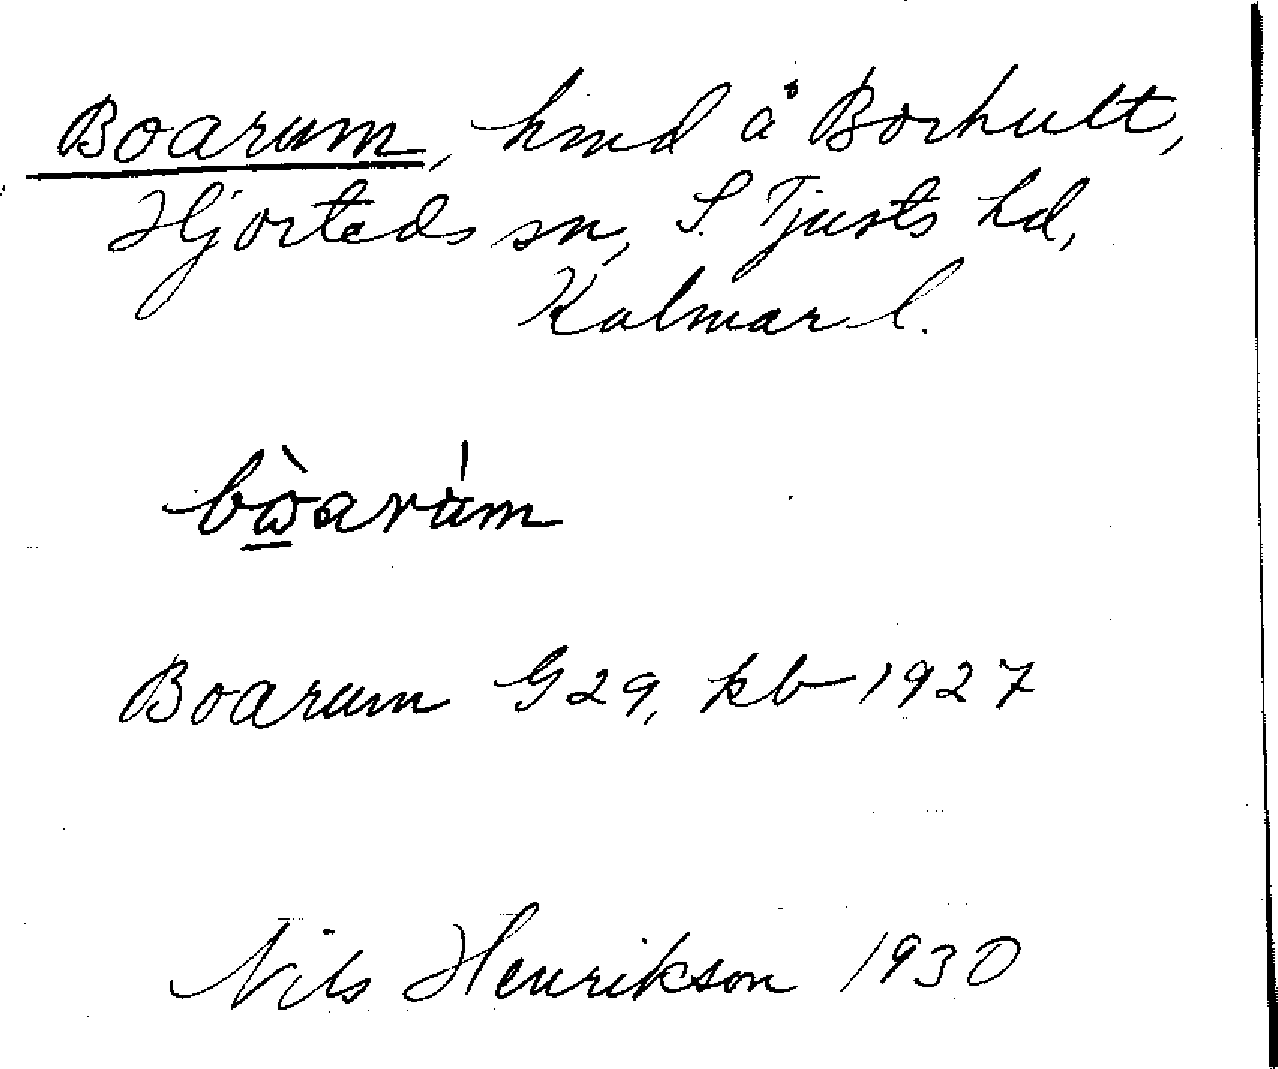 Boarum, hmd å Borhult,
Hjorteds sn, S. Tjusts hd,
Kalmar l.
bòaràm
Boarum G29, kb 1927
Nils Henrikson 1930